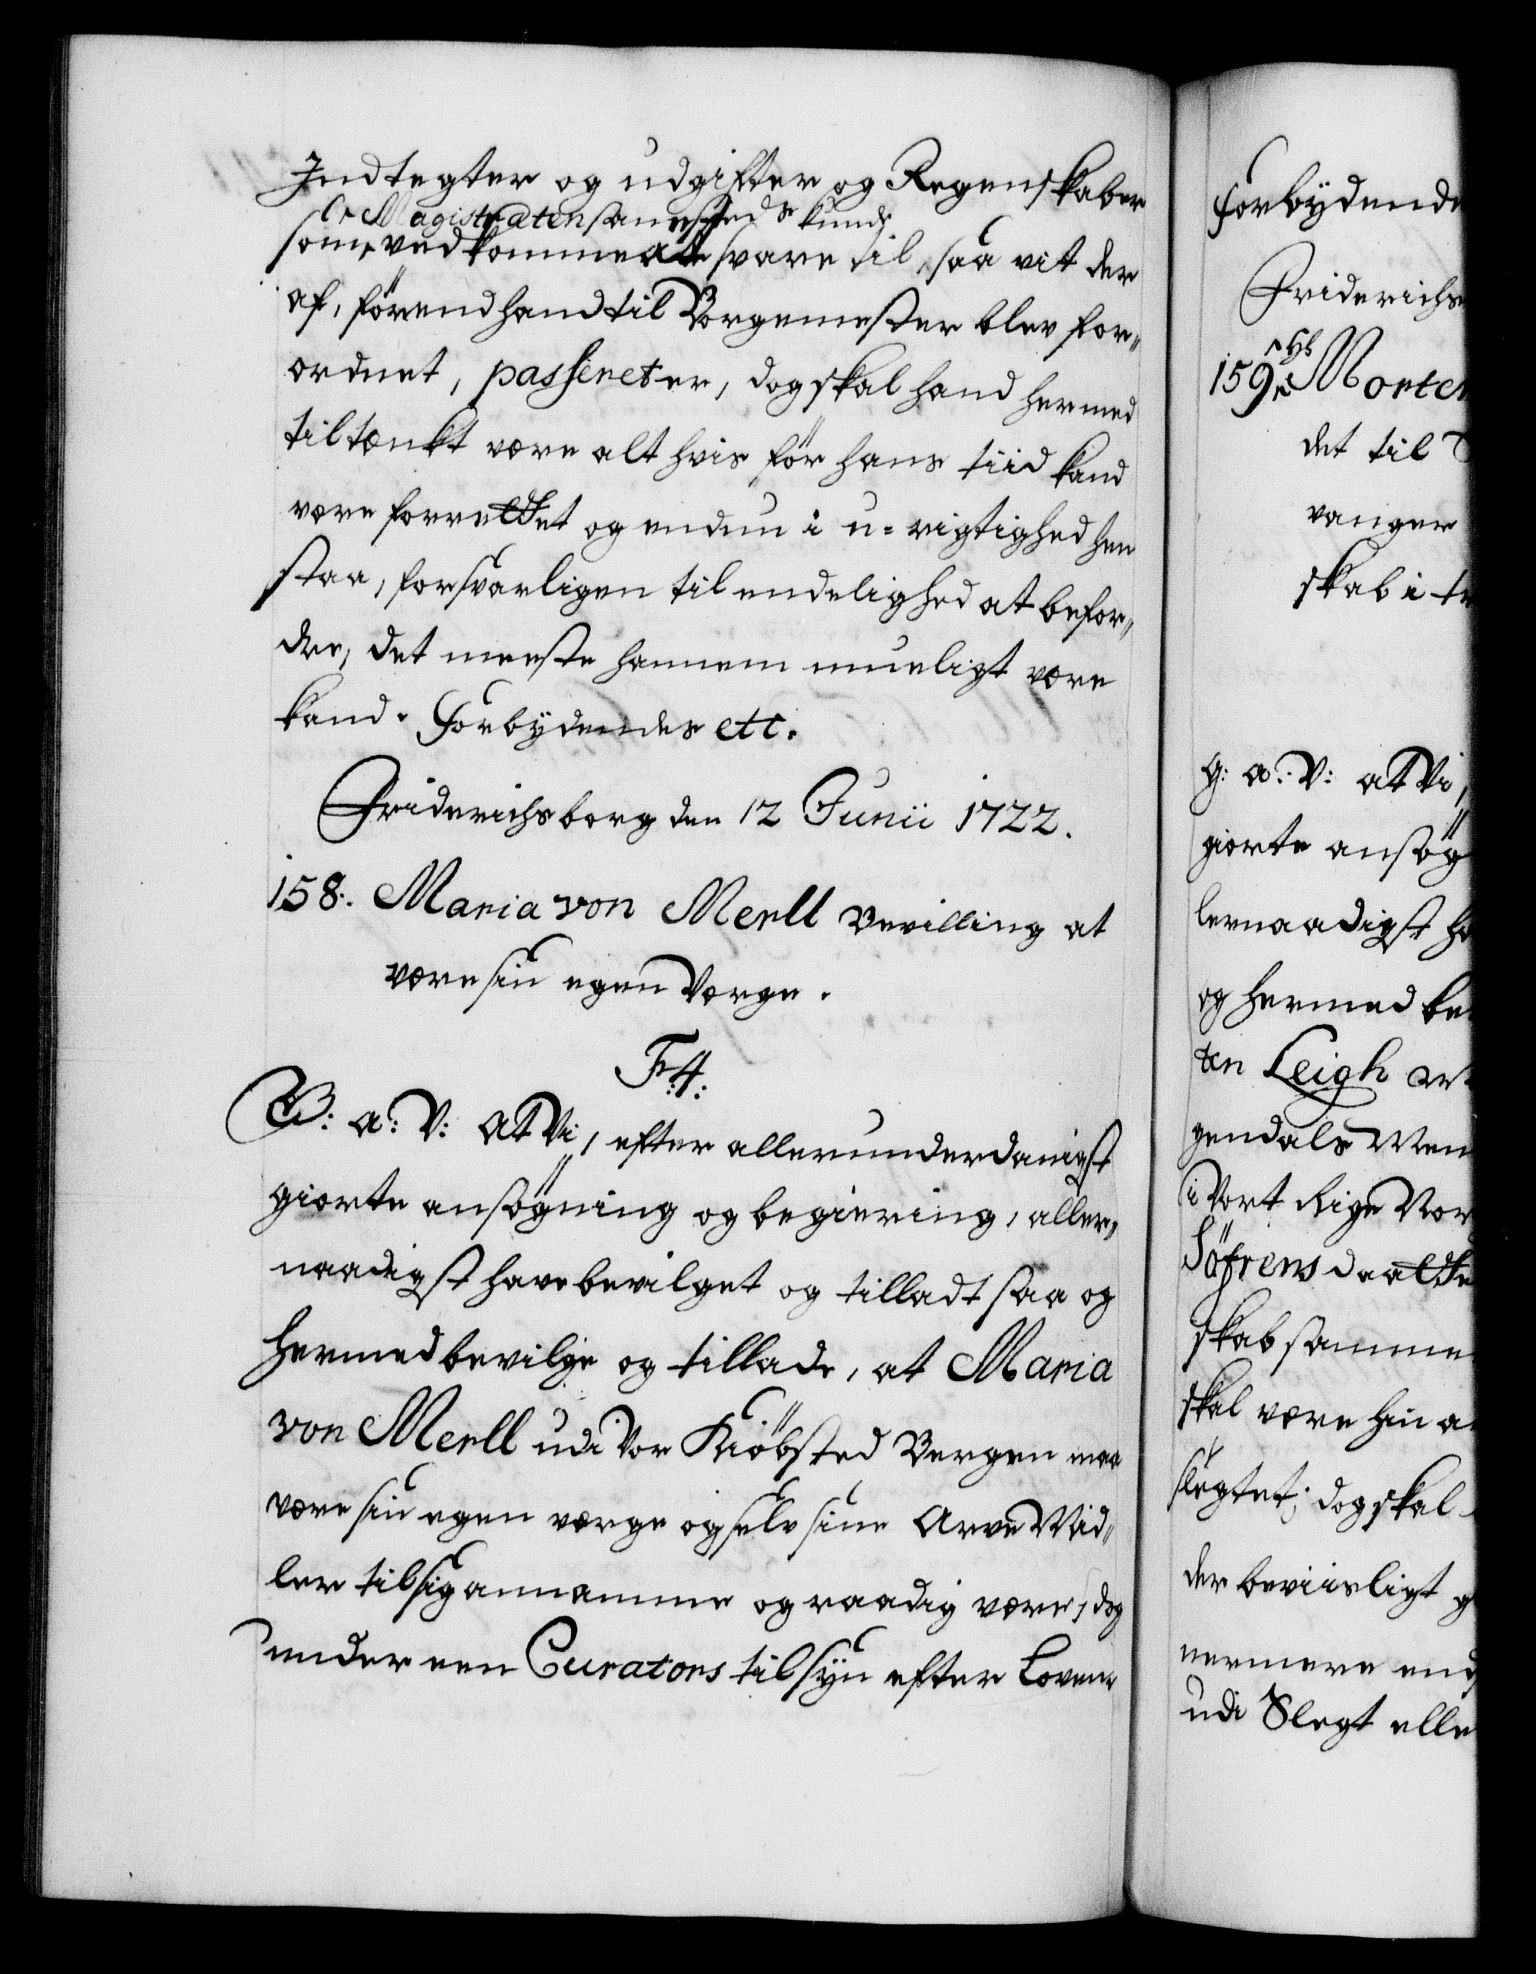 Indtegter og udgifter og Regenskaber
Magistraten sammesteds kunde
som vedkomme at svare til, saa vit der
af, förend hand til Borgemester blev for„
ordnet, passeret er, dog skal hand hermed
tiltænkt være alt hvis för hans tiid kand
være forrettet og endnu i u-rigtighed hen
staa, forsvarligen til endelighed at befor„
dre, det meeste hannem mueligt være
kand. Forbydendes etc.
Friderichsborg den 12 Junii 1722.
158. Maria von Merll Bevilling at
være sin egen Værge.
F:4:
G: a: V: at Vi, efter allerunderdanigst
giorte ansögning og begiering, aller„
naadigst have bevilget og tilladt saa og
hermed bevilge og tillade, at Maria
von Merll udi Vor Kiöbsted Bergen maa
være sin egen værge og selv sine Arve Mid„
ler til sig annamme og raadig være, dog
under een Curators tilsyn efter Loven
Forbydende
Friderichs
159. Morten
det til
vanger
skab i
G: a: V: at Vi,
giorte ansög
lernaadigst ha
og hermed be
ten Leigh
gendals
i Vort Rige Nor
Söfrens daatte
skab samme
skal være hin an
slegtet; dog skal
der beviisligt g
nermere end
udi Slegt elle